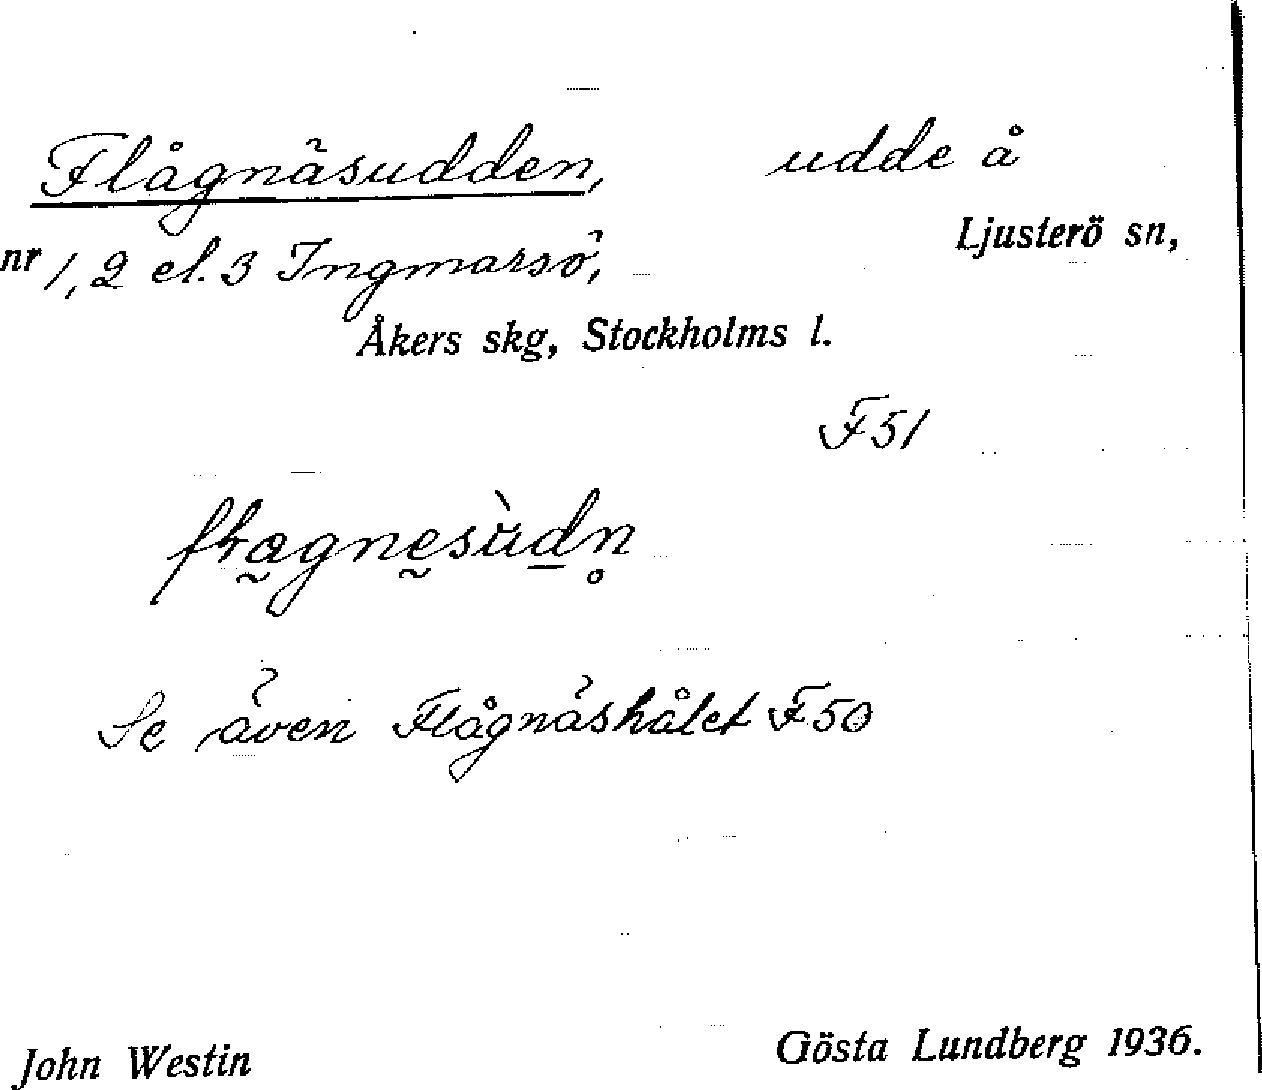 Flågnäsudden, udde å
Ljusterö sn,
nr 1, 2 el. 3 Ingmarsö,
Åkers skg, Stockholms l.
F51
Se även Flågnäshålet F50
John Westin Gösta Lundberg 1936.